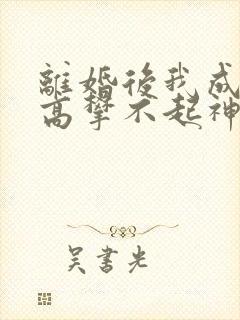 離婚後我成
高攀不起神
吳書光